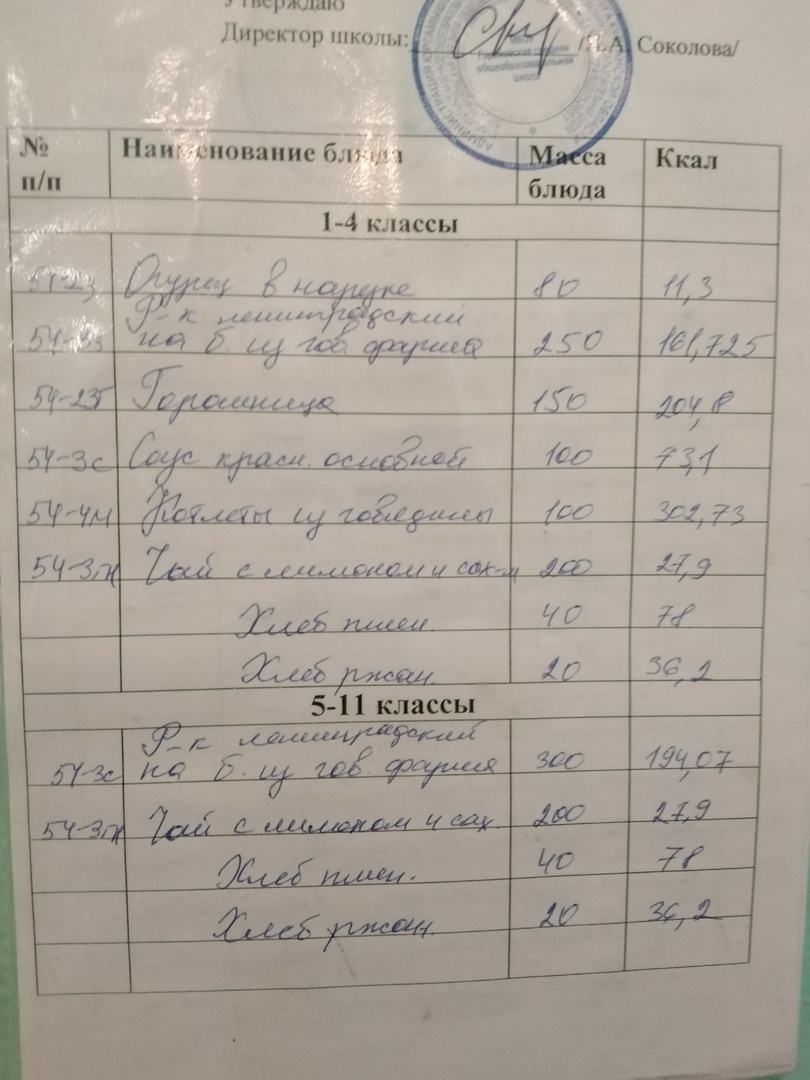 Утверждаю
Директор школы: /Л.А. Соколова/
№ п/п Наименование блюда Масса блюда Ккал
1-4 классы
54-2з Огурец в нарезке 80 11,3
Р-к ленинградский
на б. из гов. фарша 250 161,725
54-23г Горошница 150 204,8
54-3с Соус красн. основной 100 73,1
54-4м Котлеты из говядины 100 302,73
54-3гн Чай с лимоном и сах-м 200 27,9
Хлеб пшен. 40 78
Хлеб ржан. 20 36,2
5-11 классы
Р-к ленинградский
54-3с на б. из гов. фарша 300 194,07
54-3гн Чай с лимоном и сах. 200 27,9
Хлеб пшен. 40 78
Хлеб ржан. 20 36,2